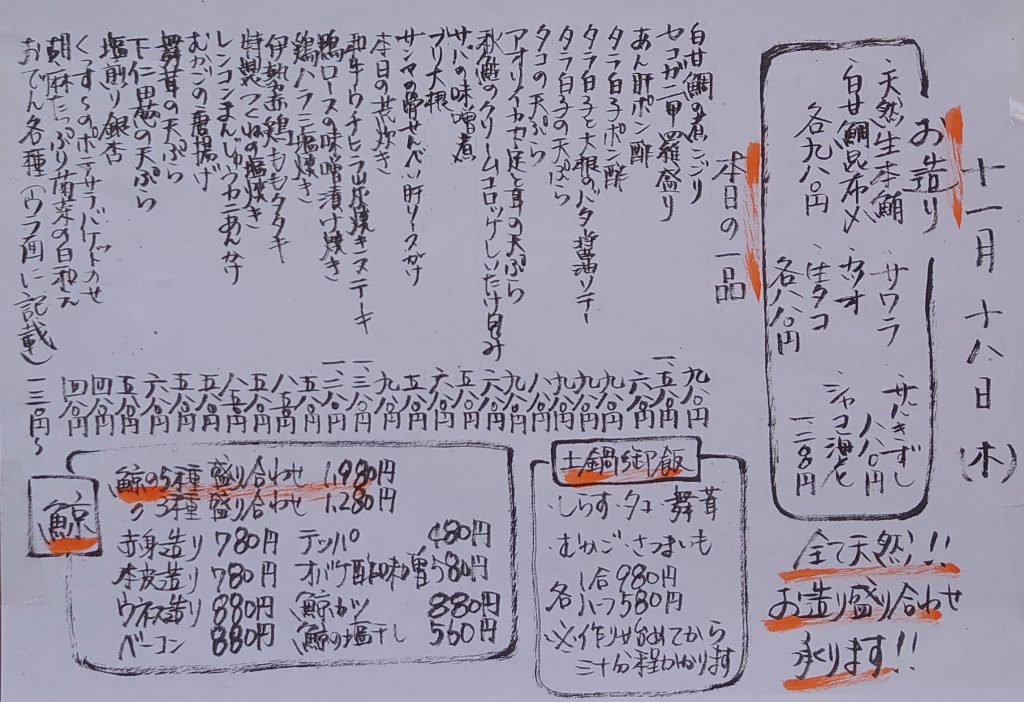 十一月十八日(木)
お造り
・天然生本鮪
・白甘鯛昆布〆
各九八〇円
・サワラ
・カツオ
・生タコ
各八八〇円
・サバきずし
八八〇円
・シャコ海老
一二八〇円
全て天然!!
お造り盛り合わせ
承ります!!
本日の一品
白甘鯛の煮こごり 九八〇円
セコガニ甲羅盛り
あん肝ポン酢 六八〇円
タラ白子ポン酢 八八〇円
タラ白子と大根のバター醤油ソテー 九八〇円
タラ白子の天ぷら 九八〇円
タコの天ぷら 八八〇円
アオリイカゲソと耳の天ぷら 九八〇円
秋鮭のクリームコロッケしいたけ包み 六八〇円
サバの味噌煮
ブリ大根 六八〇円
サンマの骨せんべい肝ソースがけ
本日の荒炊き 九八〇円
和牛ウチヒラ炭焼きステーキ
鶏ロースの味噌漬け焼き
鶏ハラミ塩焼き 五八〇円
伊勢赤鶏ももタタキ 八八〇円
特製つくねの塩焼き
レンコンまんじゅうカニあんかけ
むかごの唐揚げ 五八〇円
舞茸の天ぷら 五八〇円
下仁田葱の天ぷら 六八〇円
塩煎り銀杏 五八〇円
くっすーのポテサラバゲットのせ 四八〇円
胡麻たっぷり菊菜の白和え 四八〇円
おでん各種(ウラ面に記載) 一三〇円〜
土鍋御飯
・しらす・タコ・舞茸
・むかご・さつまいも
各 1合 980円
ハーフ 580円
※作り始めてから
三十分程かかります
鯨
鯨の5種盛り合わせ 1,980円
〃 3種盛り合わせ 1,280円
赤身造り 780円 テッパ 480円
本皮造り 780円 オバケ酢味噌 580円
ウネス造り 880円 鯨カツ 880円
ベーコン 880円 鯨の塩干し 560円